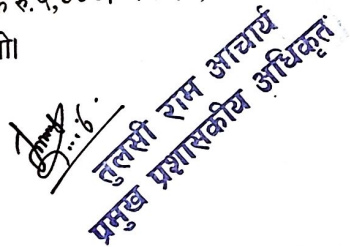 रु.
गो।
तुलसी राम आचार्य
प्रमुख प्रशासकीय अधिकृत